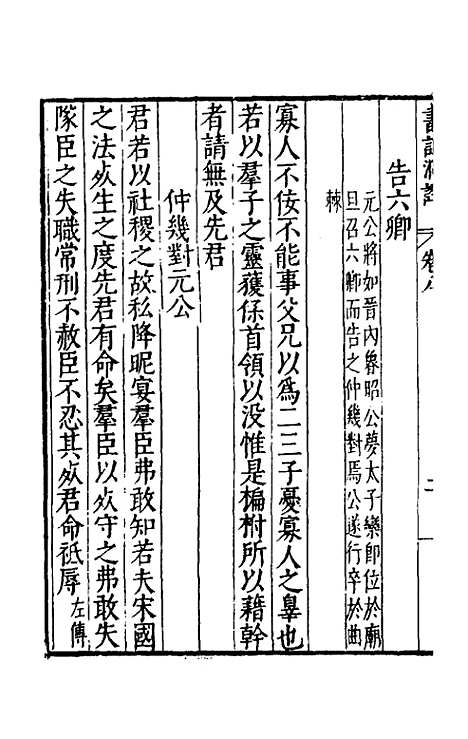 告六卿
元公將如晉內絫昭公夢太子欒卽位於廟
旦召六卿而告之仲幾對焉公遂行卒於曲
棘
寡人不佞不能事父兄以爲二三子憂寡人之辠也
若以羣子之靈獲保首領以没惟是楄柎所以藉幹
者請無及先君
仲幾對元公
君若以社稷之故私降昵宴羣臣弗敢知若夫宋國
之法死生之度先君有命矣羣臣以死守之弗敢失
隊臣之失職常刑不赦臣不忍其死君命祗辱左傳